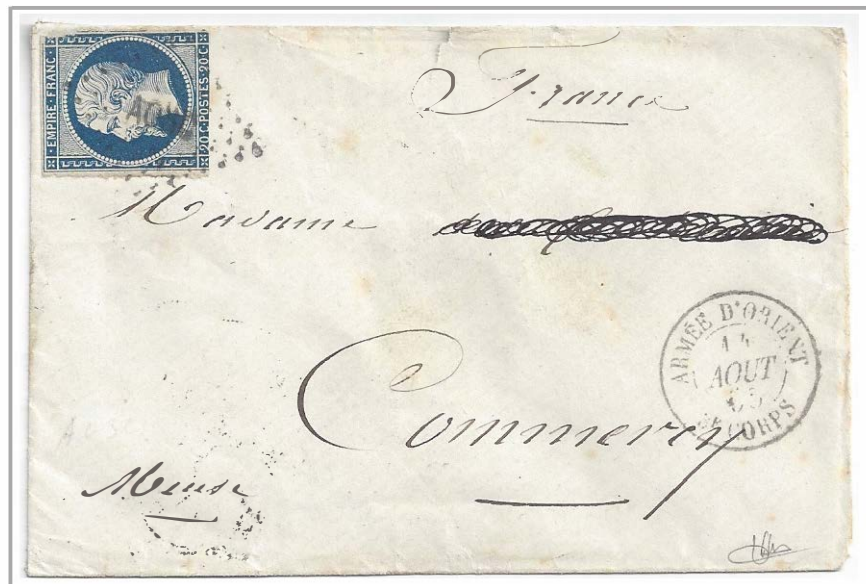 EMPIRE · FRANC ·
20 C · POSTES · 20 C
France
Madame
ARMÉE D'ORIENT
14
AOUT
CORPS
Commercy
Meuse